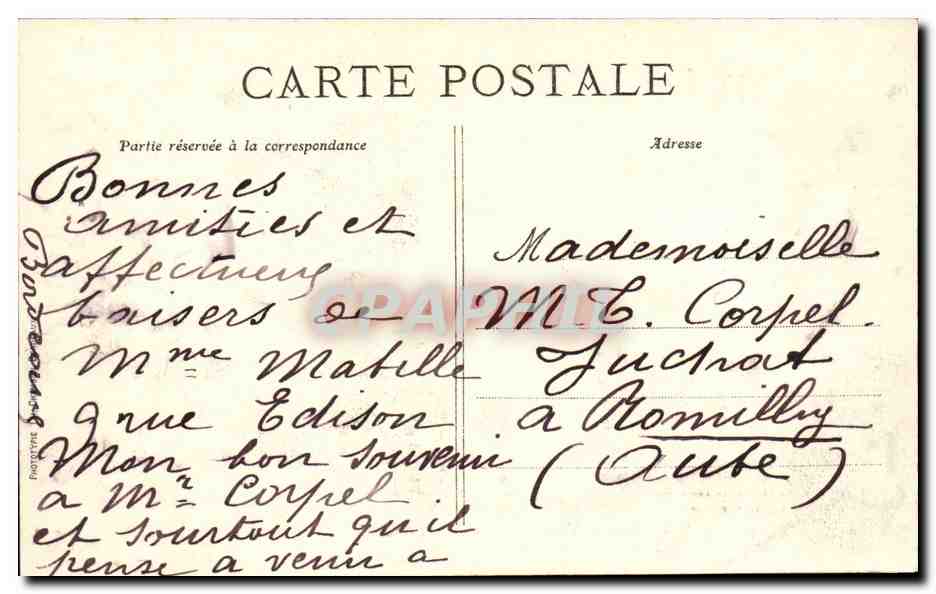 CARTE POSTALE
Partie réservée à la correspondance
Adresse
Bonnes
amities et
affectueux
baisers de
Mme Mabille
9 rue Edison
Mon bon souvenir
a Mr Corpel
et sourtout qu'il
pense a venir a
Bordeaux
Mademoiselle
M. T. Corpel.
Juchat
a Romilly
(Aube)
PHOTOTYPIE
CPAPHIL